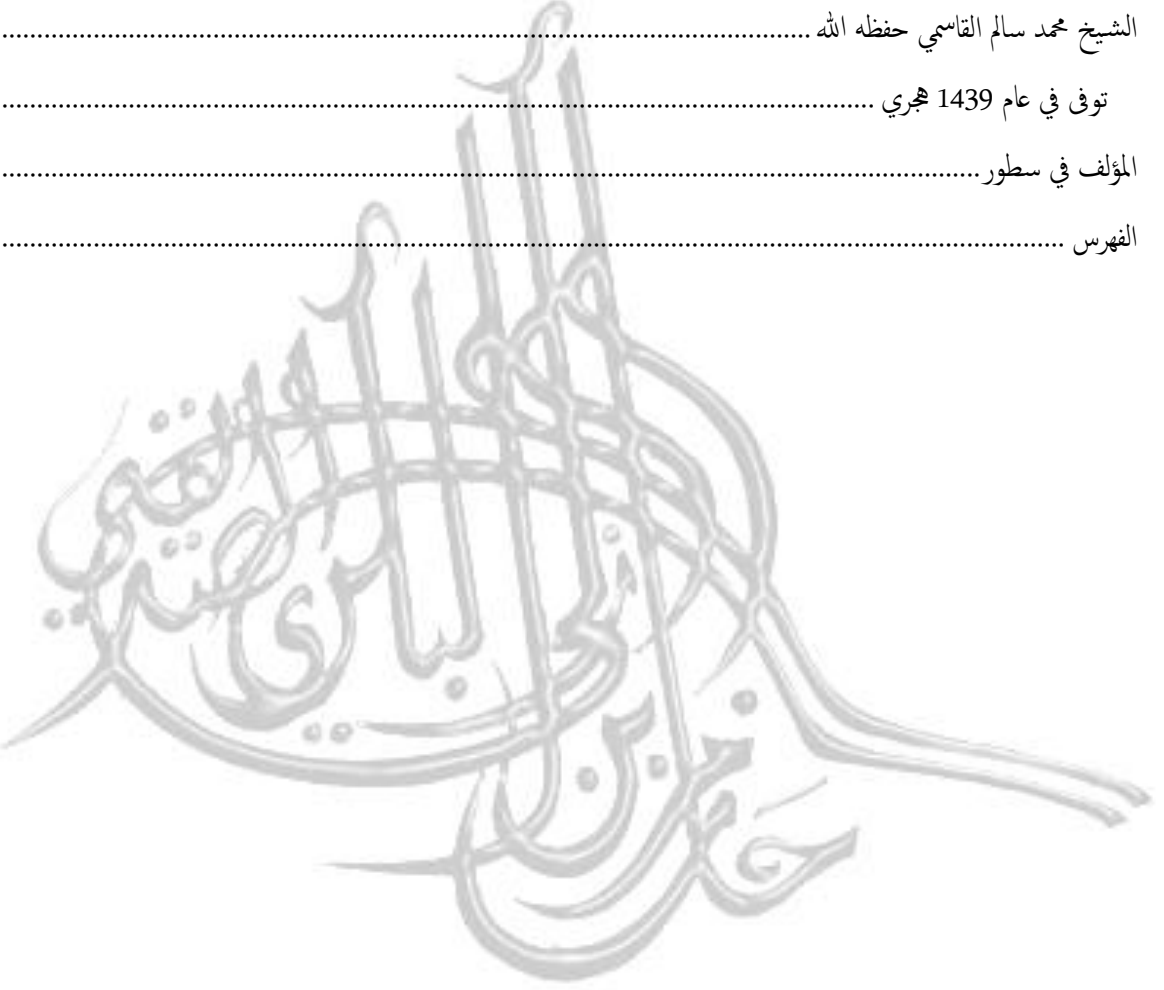 الشيخ محمد سالم القاسمي حفظه الله ........................................................................................................................
توفى في عام 1439 هجري ...............................................................................................................
المؤلف في سطور ................................................................................................................................
الفهرس ............................................................................................................................................